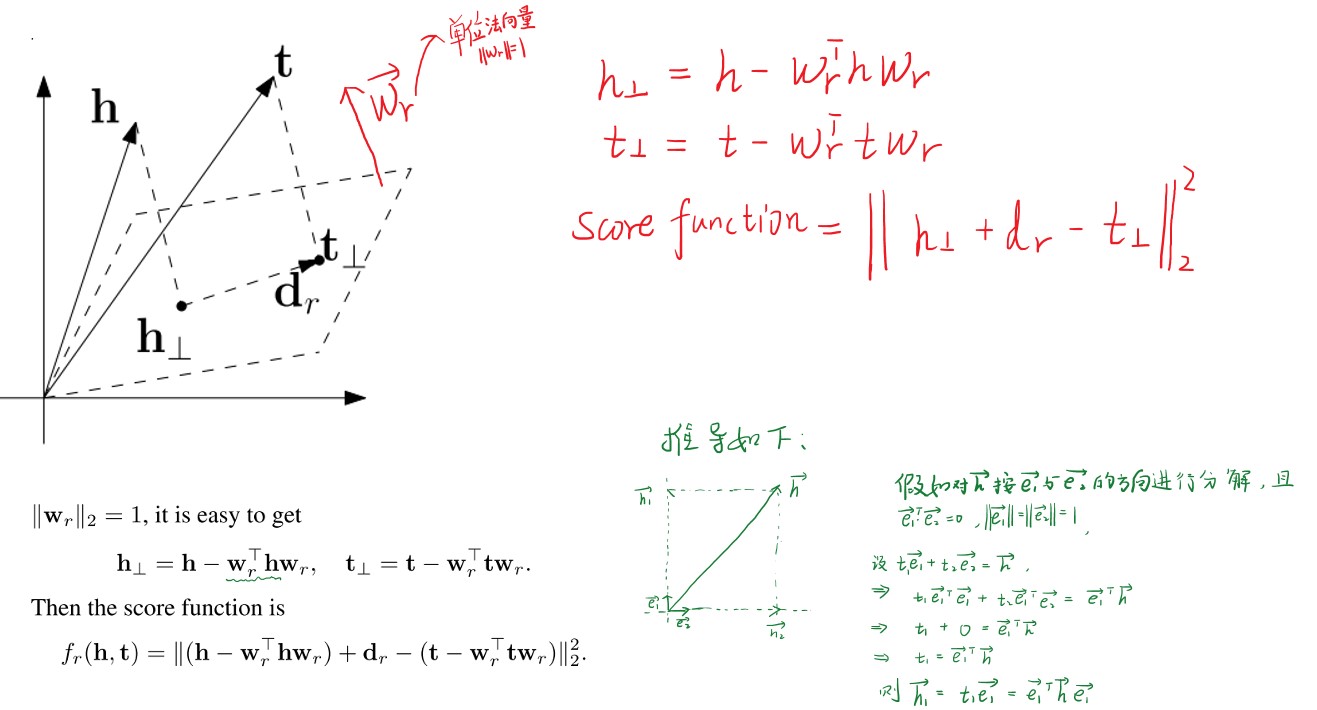 t
h
w⃗r
单位法向量
‖wr‖=1
t⊥
dr
h⊥
h⊥ = h − wr⊤hwr
t⊥ = t − wr⊤twr
Score function = ‖h⊥ + dr − t⊥‖₂²
‖wr‖₂ = 1, it is easy to get
h⊥ = h − wr⊤hwr, t⊥ = t − wr⊤twr.
Then the score function is
fr(h, t) = ‖(h − wr⊤hwr) + dr − (t − wr⊤twr)‖₂².
推导如下：
h⃗₁
h⃗
e⃗₁
e⃗₂
h⃗₂
假如对h⃗按e⃗₁与e⃗₂的方向进行分解，且
e⃗₁⊤e⃗₂=0，‖e⃗₁‖=‖e⃗₂‖=1，
设 t₁e⃗₁ + t₂e⃗₂ = h⃗，
⇒ t₁e⃗₁⊤e⃗₁ + t₂e⃗₁⊤e⃗₂ = e⃗₁⊤h⃗
⇒ t₁ + 0 = e⃗₁⊤h⃗
⇒ t₁ = e⃗₁⊤h⃗
则 h⃗₁ = t₁e⃗₁ = e⃗₁⊤h⃗e⃗₁